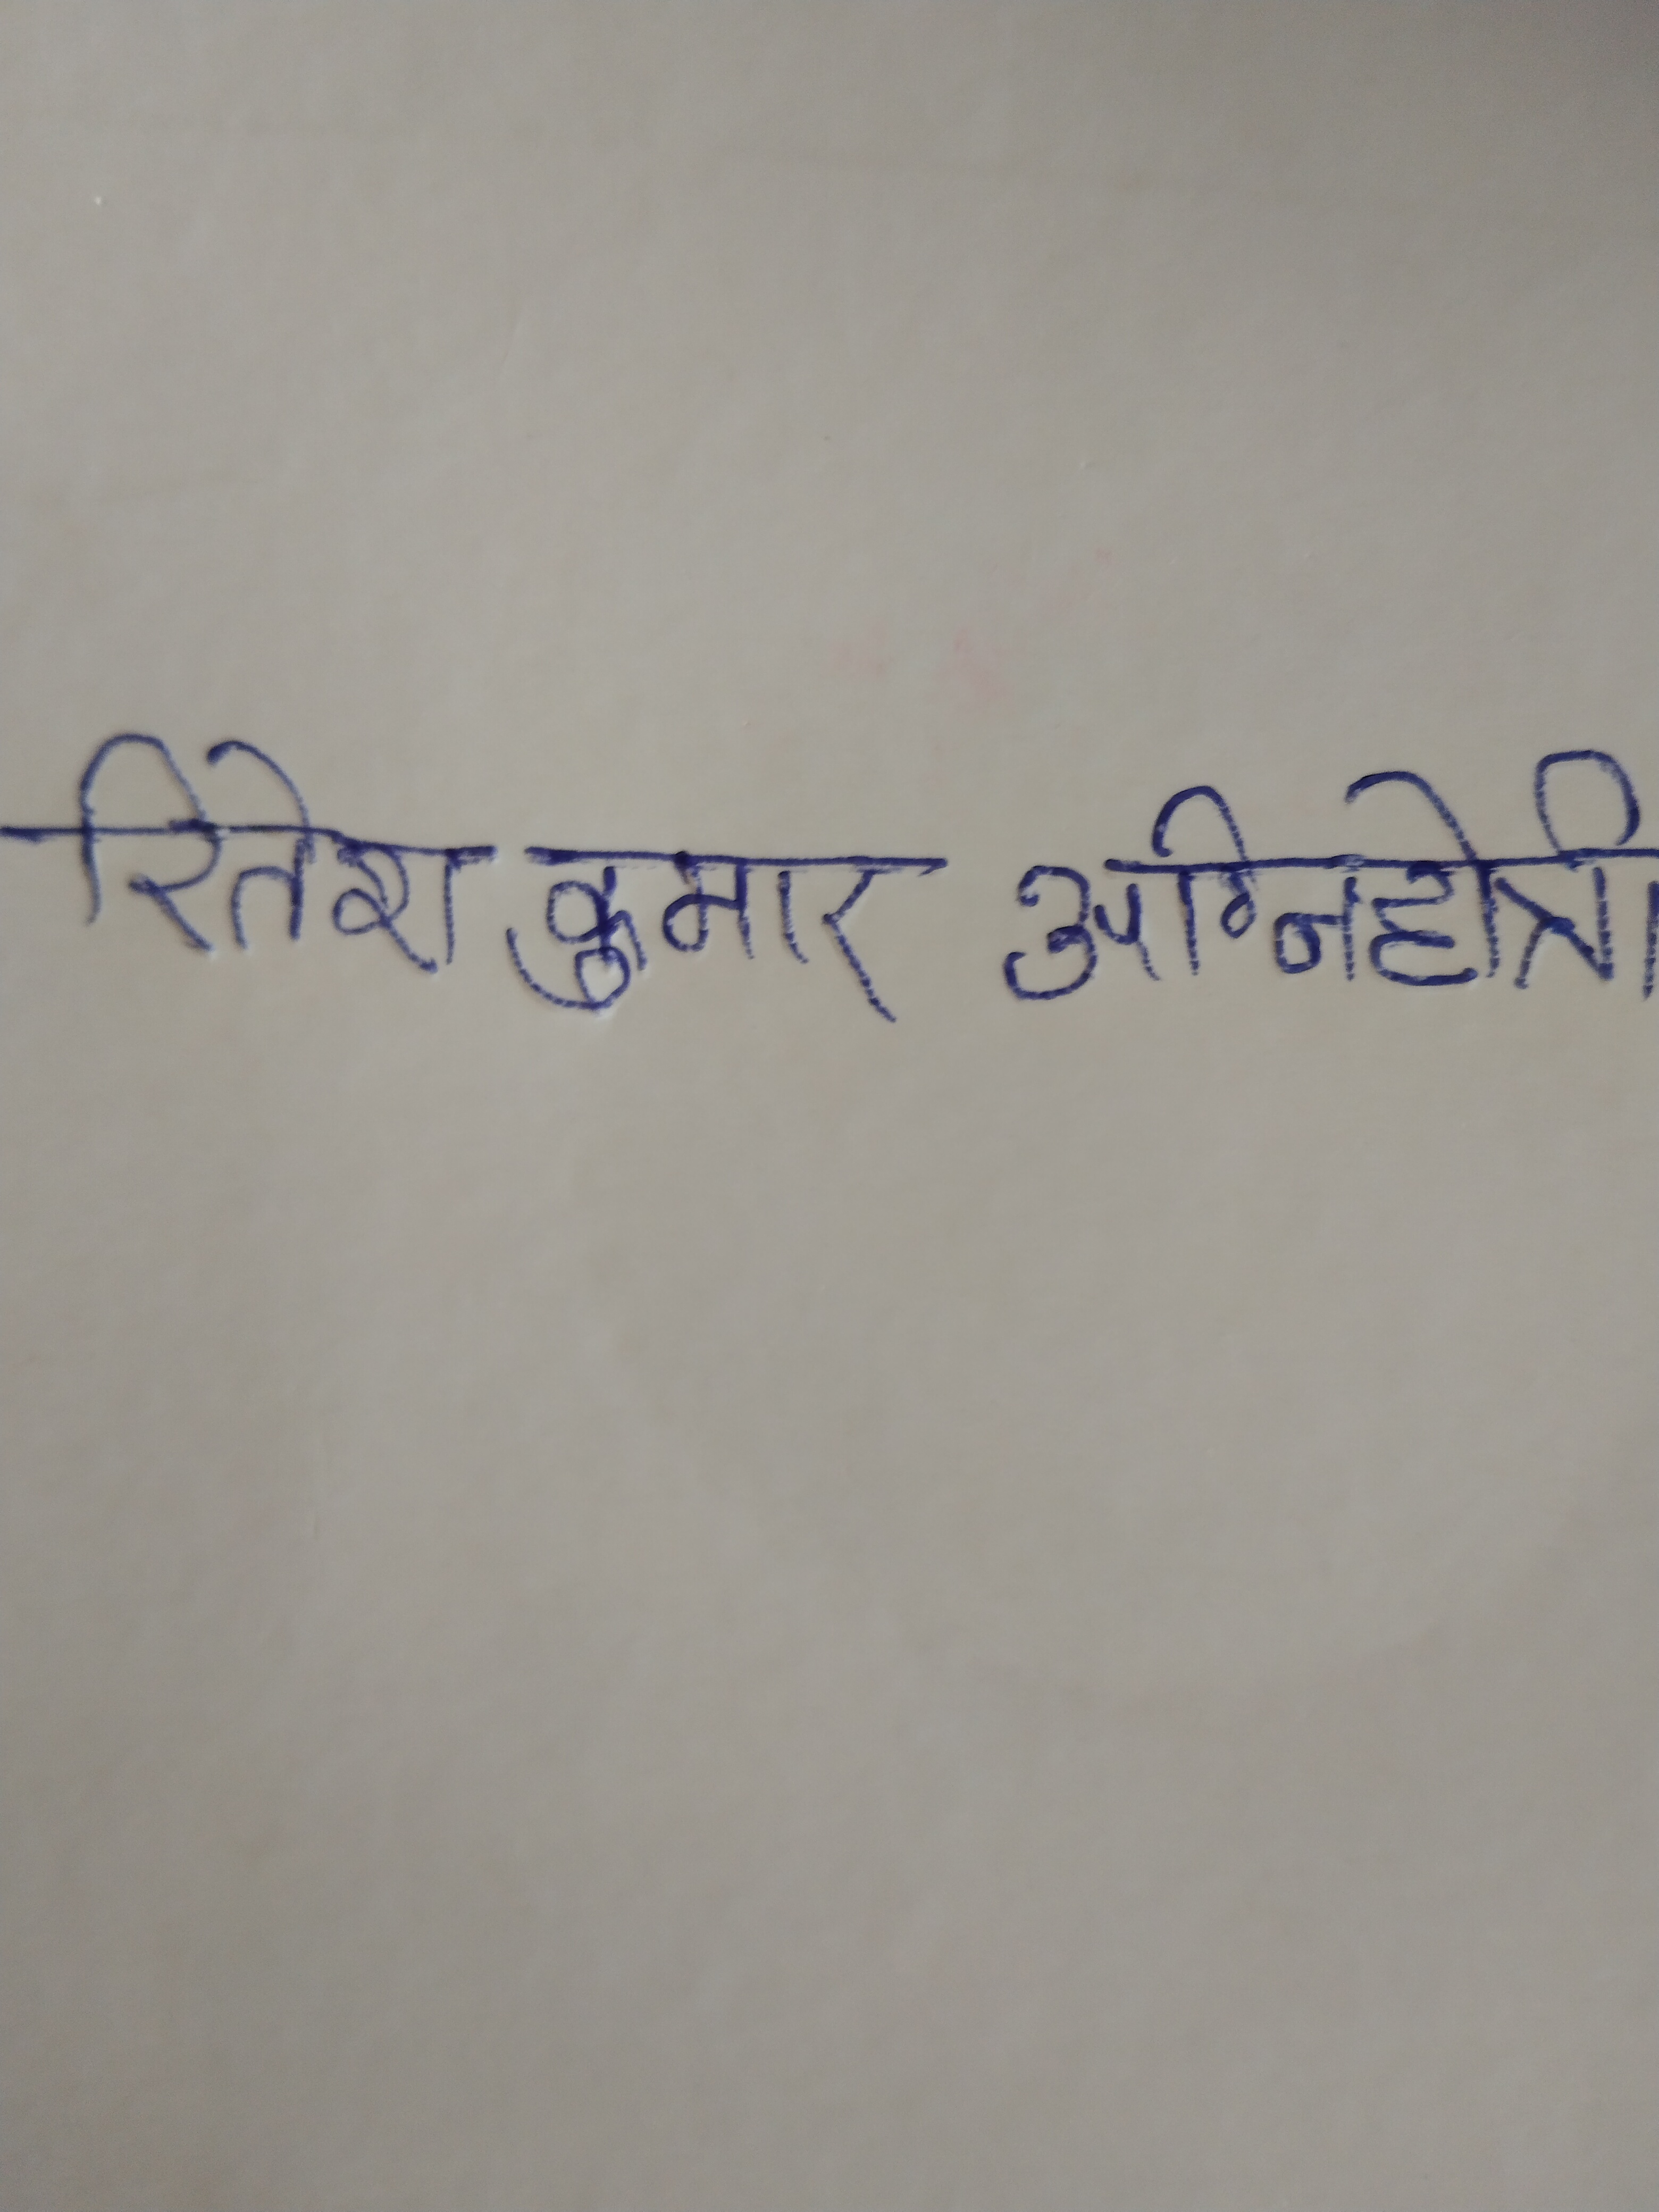 रितेश कुमार अग्निहोत्री